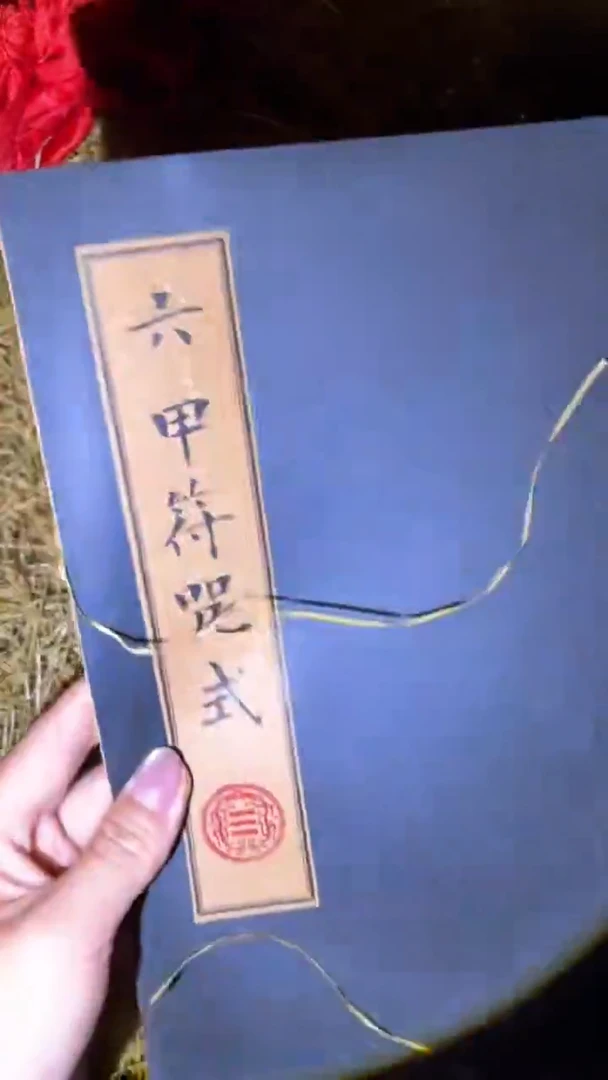 六甲符咒式